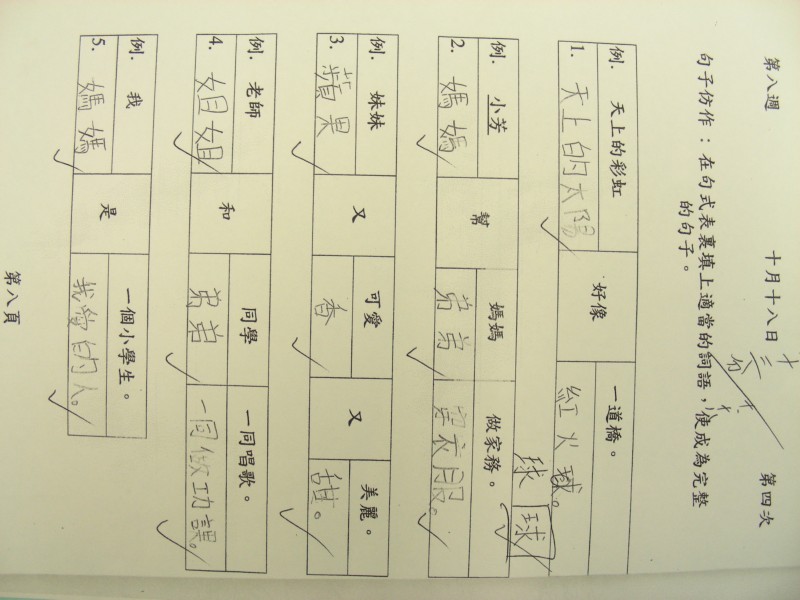 第八週 十月十八日 第四次
句子仿作：在句式表裏填上適當的詞語，使成為完整
的句子。
例. 天上的彩虹 好像 一道橋。
1. 天上的太陽 紅火球。
球 球
例. 小芳 幫 媽媽 做家務。
2. 媽媽 弟弟 穿衣服。
例. 妹妹 又 可愛 又 美麗。
3. 蘋果 香 甜。
例. 老師 和 同學 一同唱歌。
4. 姐姐 弟弟 一同做功課。
例. 我 是 一個小學生。
5. 媽媽 我愛的人。
第八頁